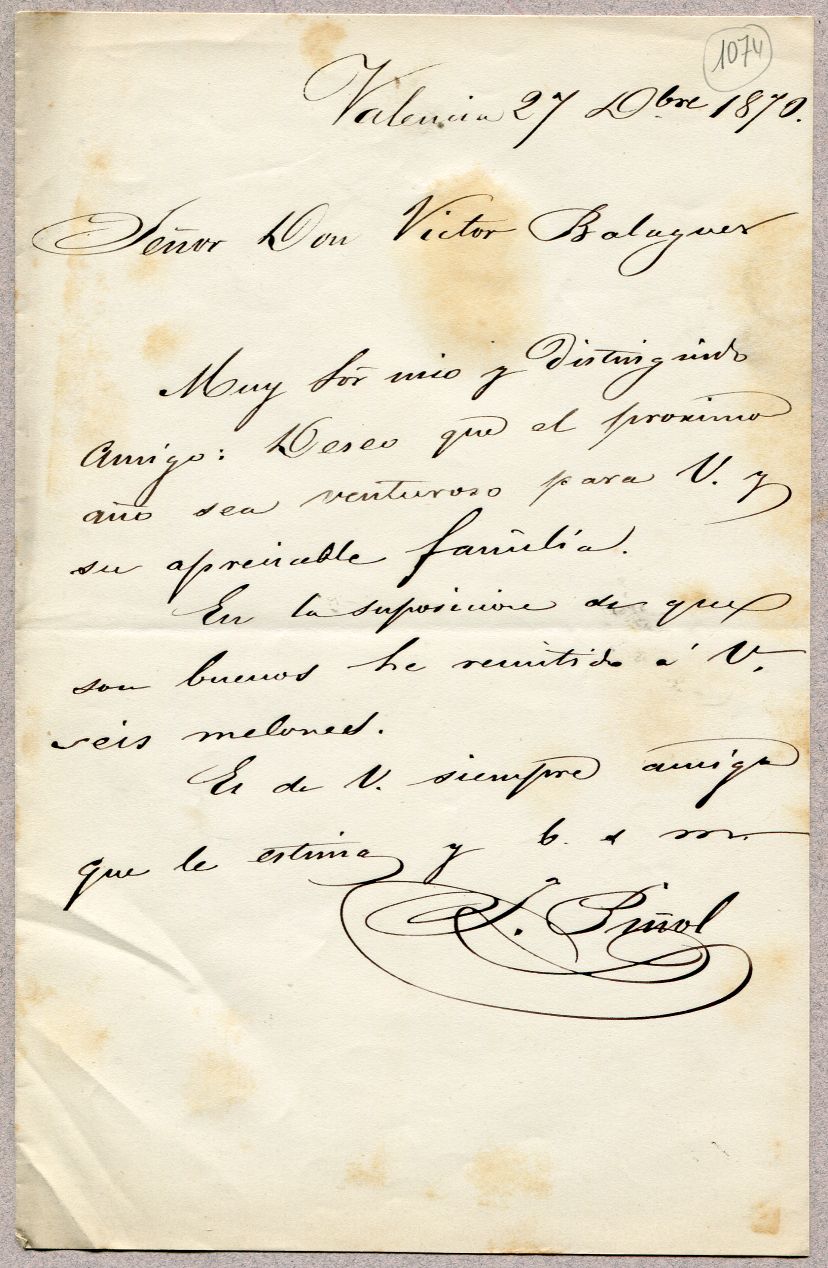 1074
Valencia 27 Dbre 1870.
Señor Don Victor Balaguer
Muy Sôr mio y distinguido
amigo: Deseo que el proximo
año sea venturoso para V. y
su apreciable familia.
En la suposicion de que
son buenos he remitido á V.
seis melones.
Es de V. siempre amigo
que le estima y b. s m.
Piñol